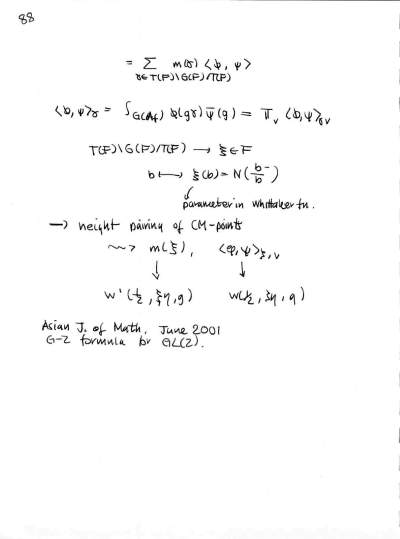 88
= Σ m(γ) <φ, ψ>
γ∈T(F)\G(F)/T(F)
<φ,ψ>γ = ∫G(Af) φ(gγ) ψ̄(g) = πv <φ,ψ>γv
T(F)\G(F)/T(F) → ξ∈F
b ↦ ξ(b) = N(b-/b)
parameter in Whittaker fn.
→ height pairing of CM-points
⇝ m(ξ), <φ,ψ>ξ,v
↓ ↓
W'(½, ξη, g) W(½, ξη, g)
Asian J. of Math, June 2001
G-Z formula for GL(2).